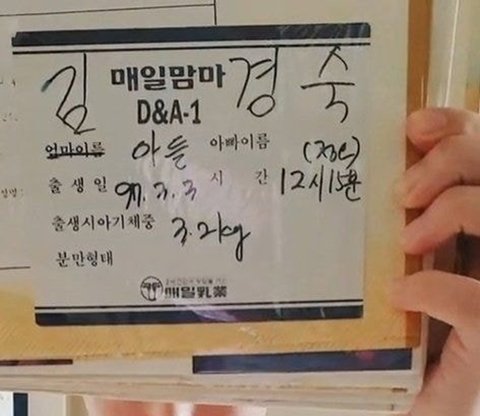 김 매일맘마 경숙
D&A-1
엄마이름 아들 아빠이름
출생일 97. 3. 3 시간 12시 15분
출생시아기체중 3.2kg
분만형태
매일乳業